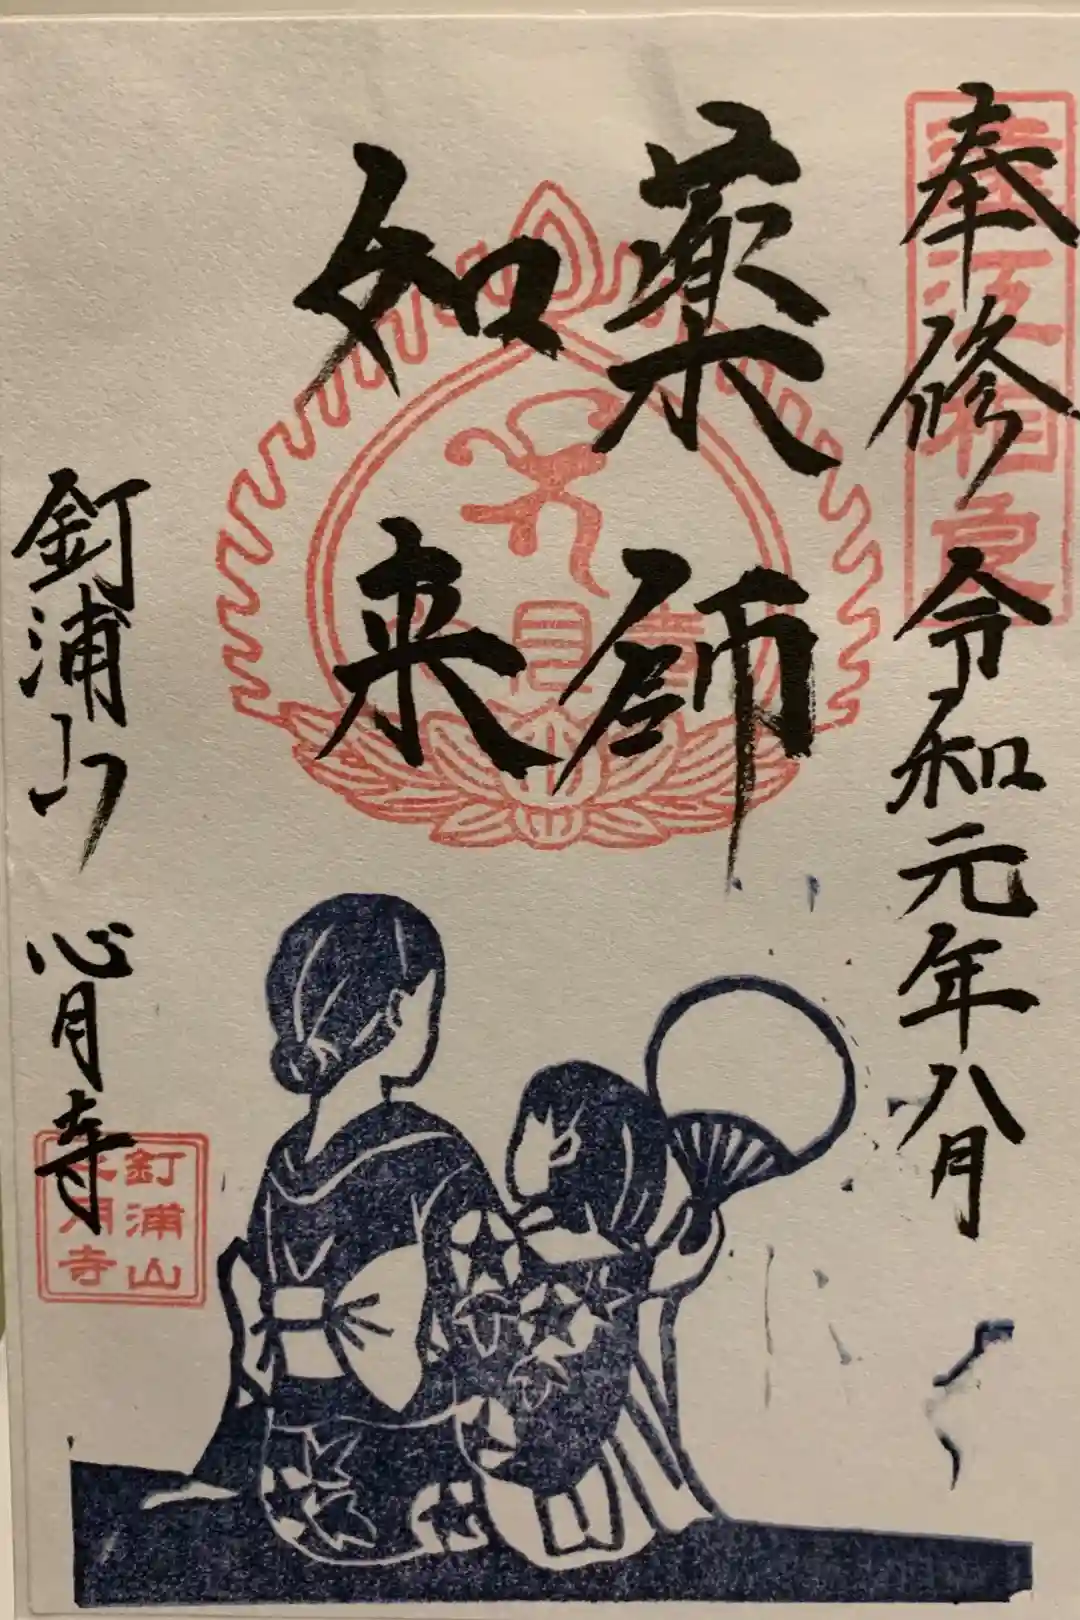 奉修 令和元年八月
江相良
薬師
如来
釘浦山 心月寺
釘浦山
心月寺